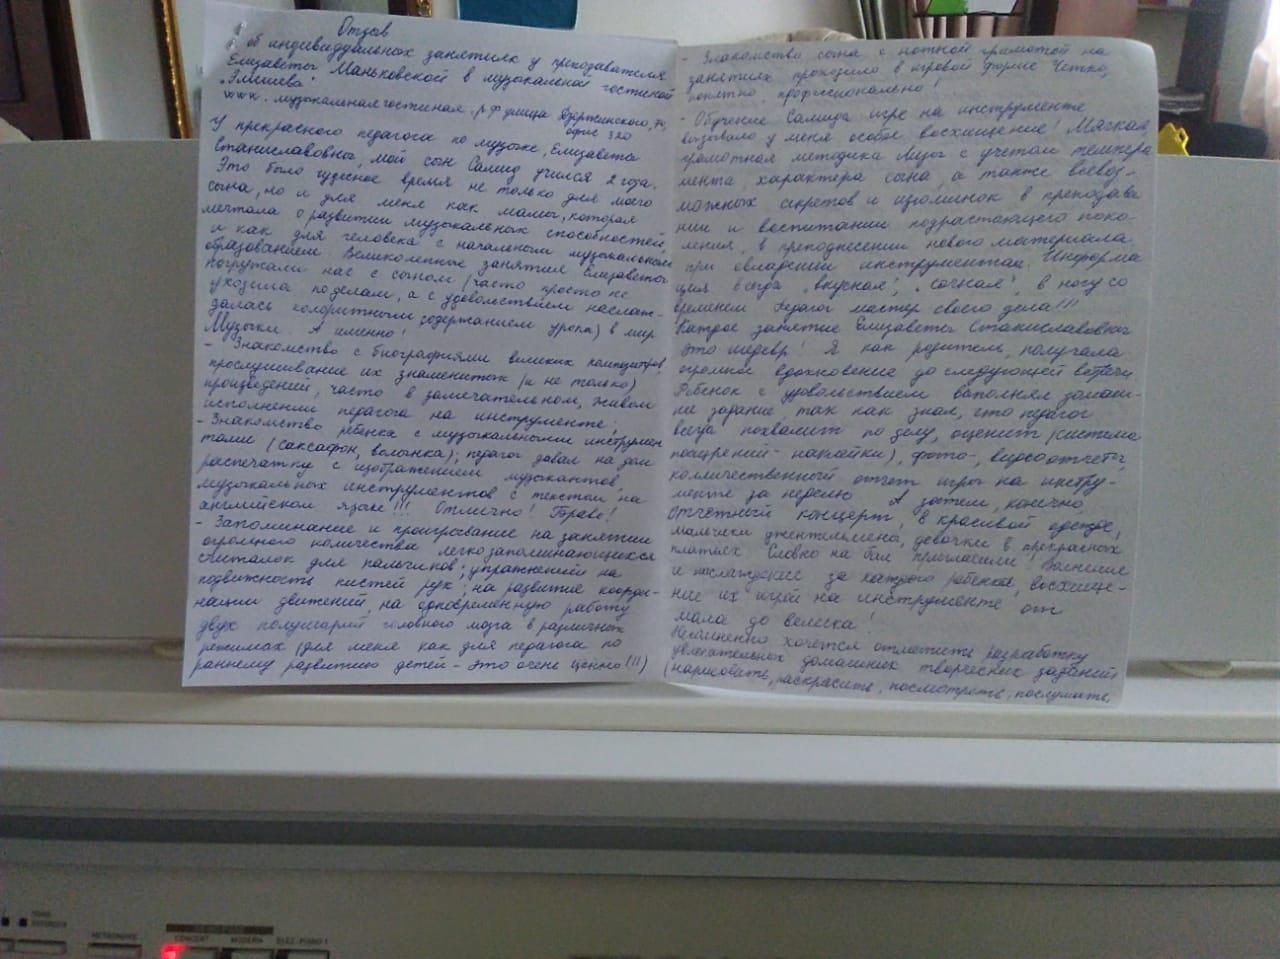 Отзыв
об индивидуальных занятиях у преподавателя
Елизаветы Маньковской в музыкальной гостиной
"Элишева"
www.музыкальнаягостиная.рф улица Дзержинского, 74,
офис 320
У прекрасного педагога по музыке, Елизаветы
Станиславовны, мой сын Салид учился 2 года.
Это было чудесное время не только для моего
сына, но и для меня как мамы, которая
мечтала о развитии музыкальных способностей,
и как для человека с начальным музыкальным
образованием. Великолепные занятия Елизаветы
погружали нас с сыном (часто просто не
уходила по делам, а с удовольствием наслаж-
далась колоритным содержанием урока) в мир
Музыки. А именно!
- Знакомство с биографиями великих композиторов,
прослушивание их знаменитых (и не только)
произведений, часто в замечательном, живом
исполнении педагога на инструменте;
- Знакомство ребенка с музыкальными инструмен
тами (саксафон, волынка); педагог давал на дом
распечатку с изображением музыкантов,
музыкальных инструментов с текстом на
английском языке!!! Отлично! Браво!
- Запоминание и проигрывание на занятии
огромного количества легкозапоминающихся
считалок для пальчиков; упражнений на
подвижность кистей рук; на развитие коорди-
нации движений, на одновременную работу
двух полушарий головного мозга в различных
режимах (для меня как для педагога по
раннему развитию детей - это очень ценно!!!)
- Знакомство сына с нотной грамотой на
занятиях проходило в игровой форме. Четко,
понятно, профессионально!
- Обучение Салида игре на инструменте
вызывало у меня особое восхищение! Мягкая,
грамотная методика Лизы с учетом темпера
мента, характера сына, а также всевоз-
можных секретов и изюминок в преподава
нии и воспитании подрастающего поко-
ления, в преподнесении нового материала
при овладении инструментом. Информа
ция всегда "вкусная", "сочная", в ногу со
временем. Педагог мастер своего дела!!!
Каждое занятие Елизаветы Станиславовны
это шедевр! Я как родитель, получала
огромное вдохновение до следующей встречи.
Ребенок с удовольствием выполнял домаш-
не задание, так как знал, что педагог
всегда похвалит по делу, оценит (система
поощрений - наклейки), фото-, видеоотчеты,
количественный отчет игры на инстру-
менте за неделю. А затем, конечно,
Отчетный концерт! В красивой одежде,
мальчики джентльмены, девочки в прекрасных
платьях. Словно на бал пригласили! Волнение
и наслаждение за каждого ребенка, восхище-
ние их игрой на инструменте от
мала до велика!
Несомненно хочется отметить разработку
увлекательных домашних творческих заданий
(нарисовать, раскрасить, посмотреть, послушать,
METRONOME
CONCERT
MODERN
ELEC. PIANO 1